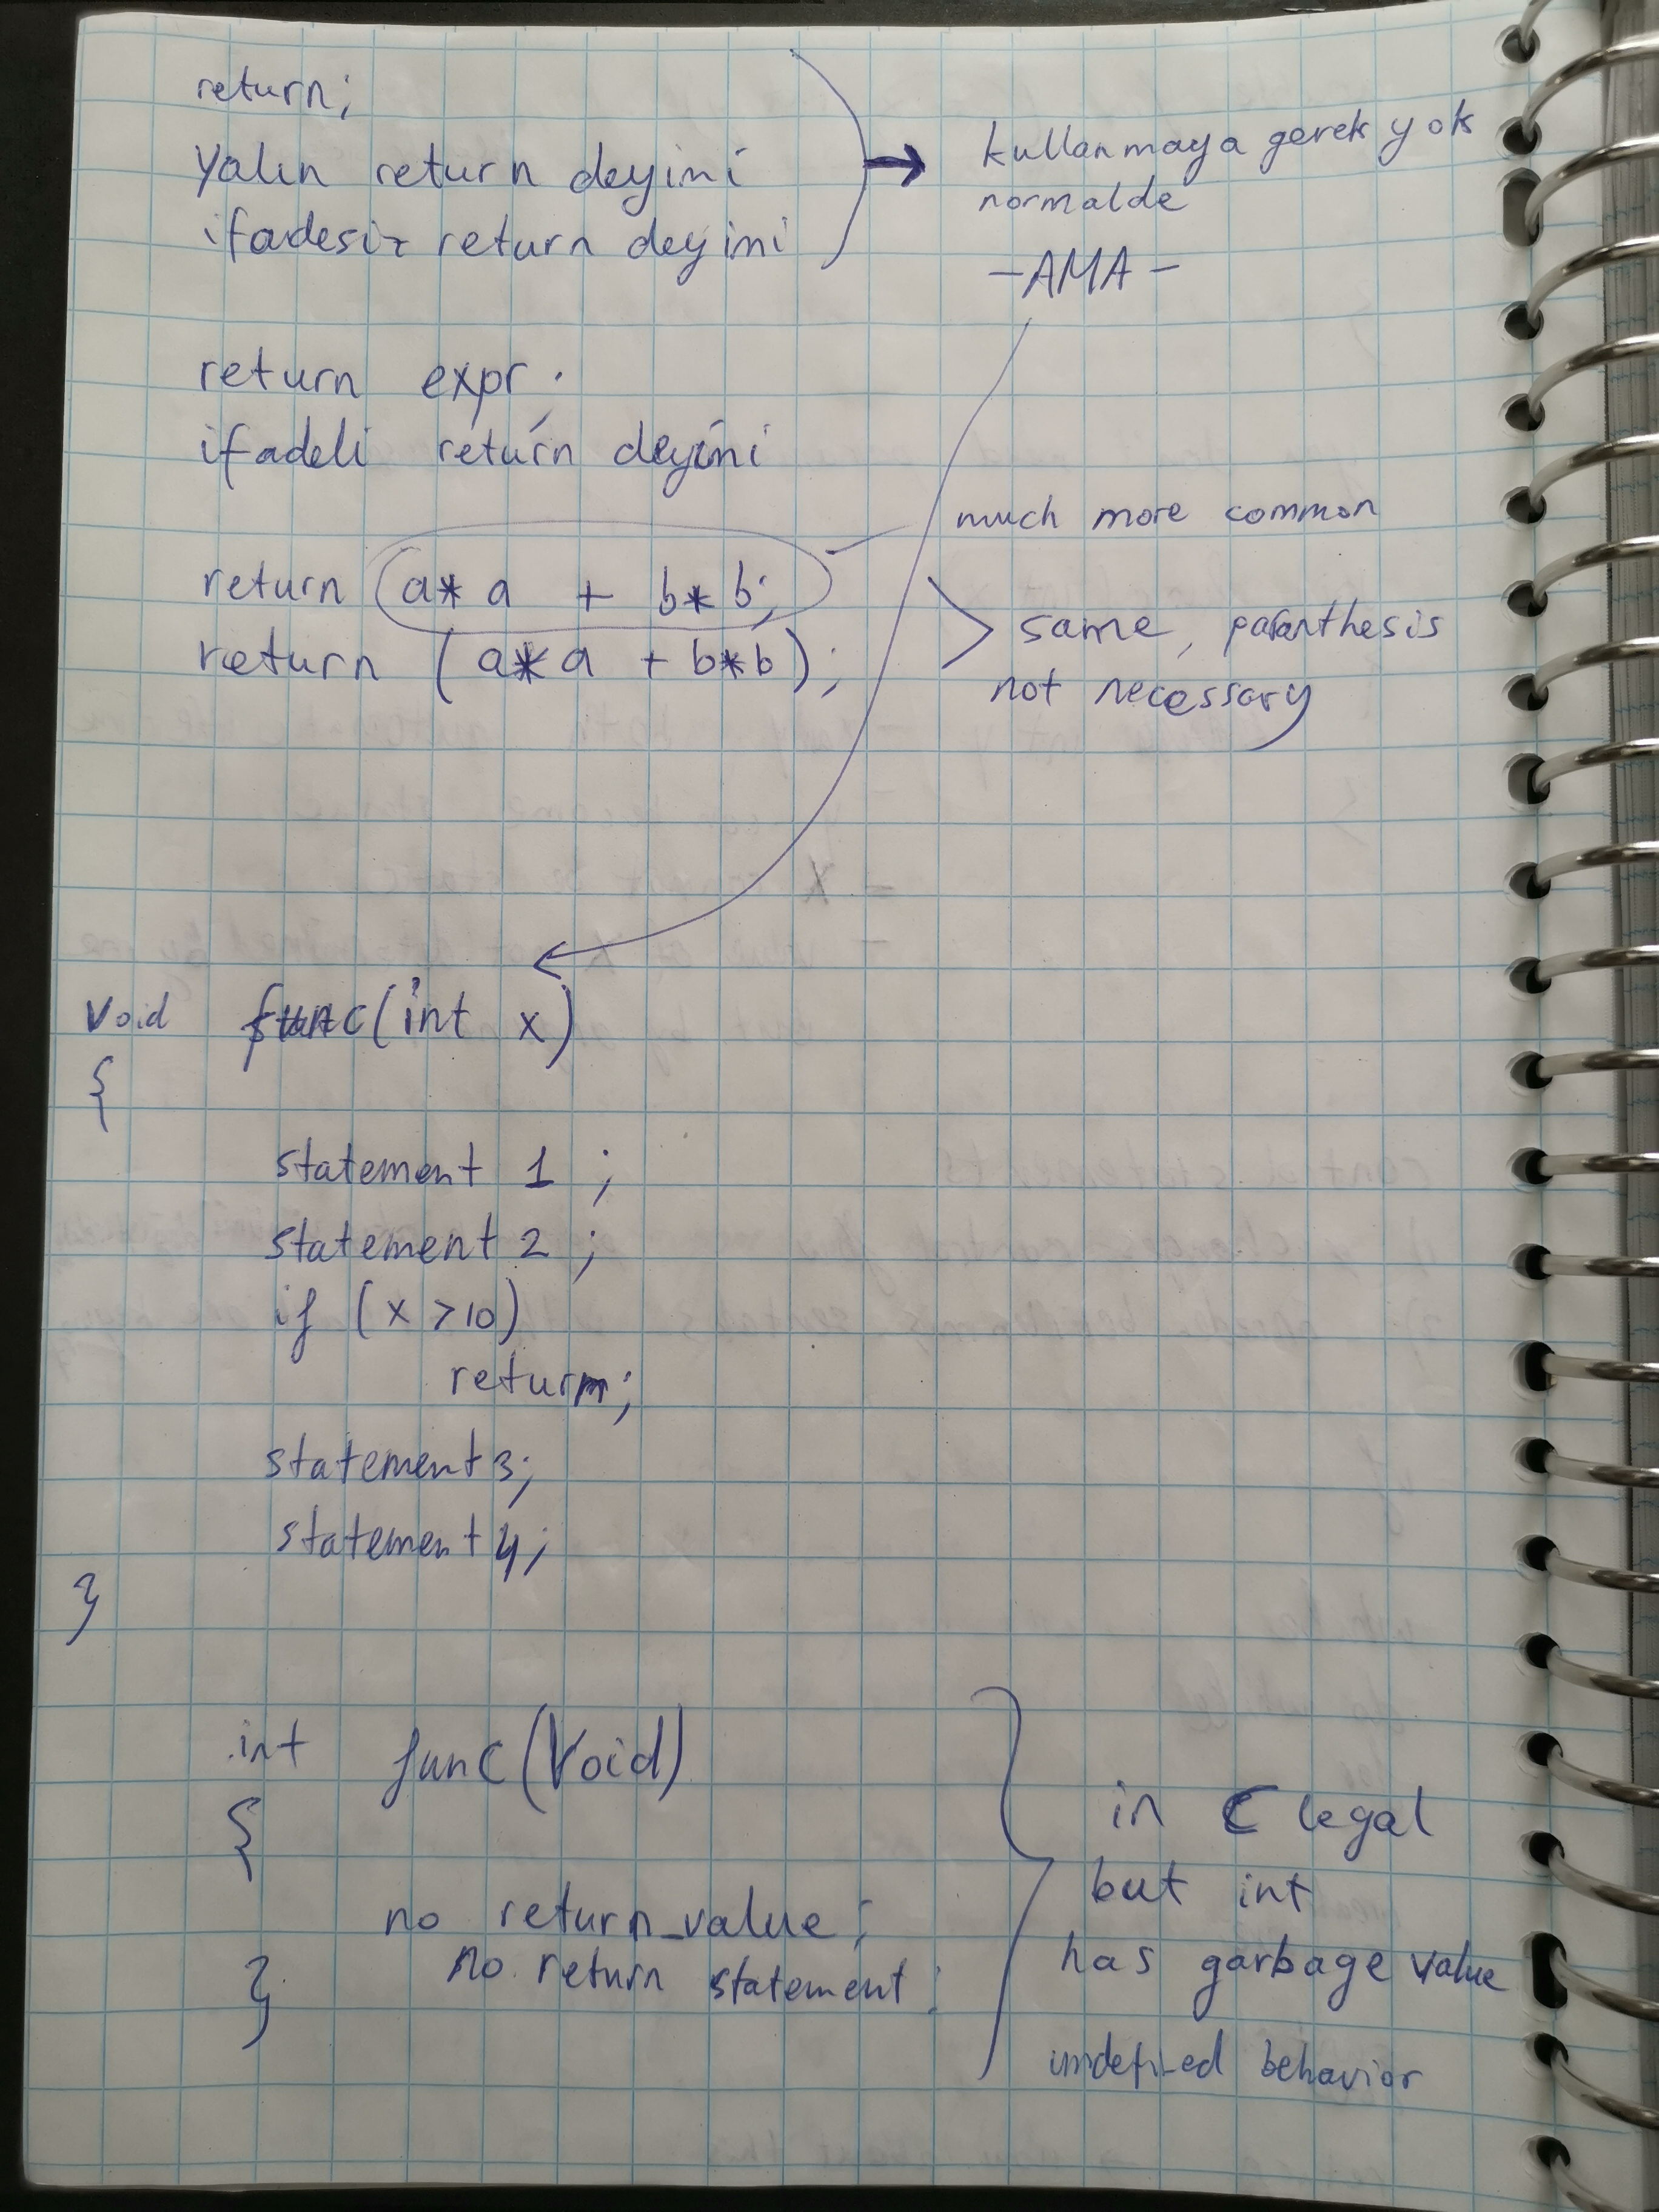 return;
Yalın return deyimi
ifadesiz return deyimi
kullanmaya gerek yok
normalde
-AMA-
return expr;
ifadeli return deyimi
much more common
return a*a + b*b;
return (a*a + b*b);
same, paranthesis
not necessary
void func(int x)
{
statement 1 ;
statement 2 ;
if (x >10)
return;
statement3;
statement4;
}
int func(void)
{
no return_value;
no return statement;
}
in C legal
but int
has garbage value
undefined behavior